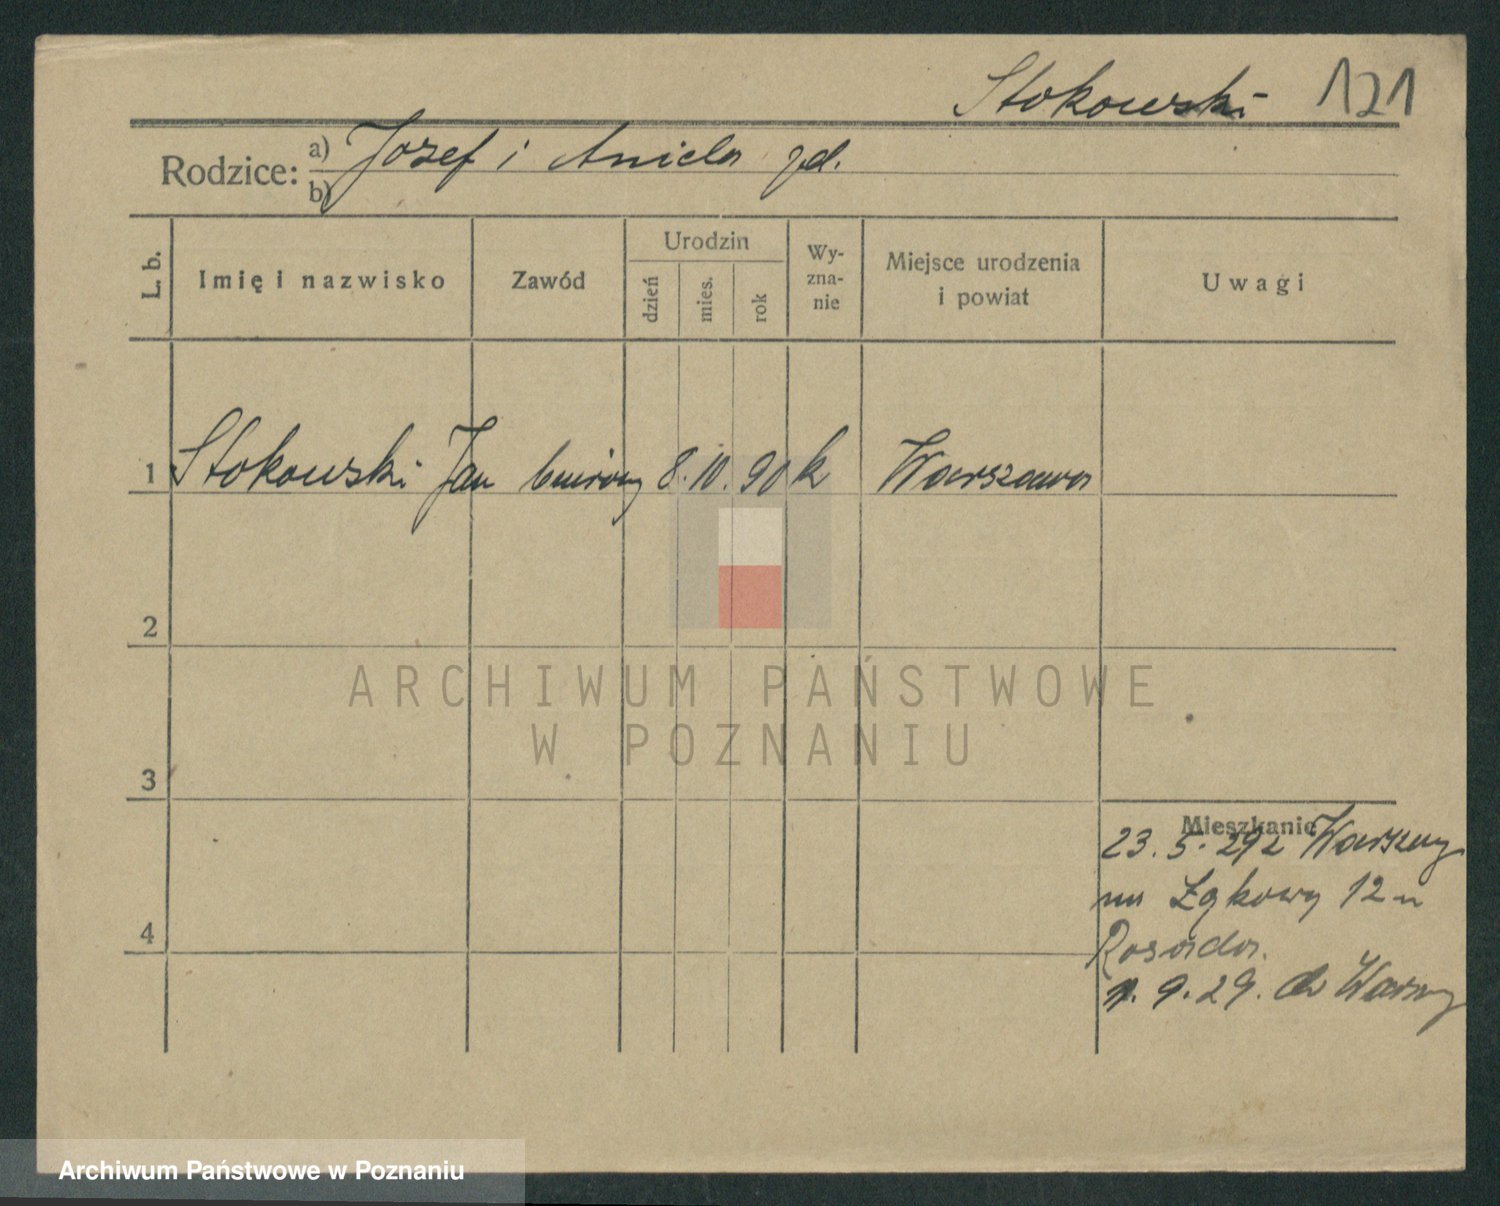 Stokowski 121
Rodzice: a) Jozef i Aniela
b)
L. b.
Imię i nazwisko
Zawód
Urodzin
dzień
mies.
rok
Wy-
zna-
nie
Miejsce urodzenia
i powiat
Uwagi
1 Stokowski Jan 8. 10. 90 k Warszawa
2
ARCHIWUM PAŃSTWOWE
W POZNANIU
3
Mieszkanie
23. 5. 29 z Warszawy
na Łąkowy 12
Rosada.
9. 29. do Warszawy
4
Archiwum Państwowe w Poznaniu